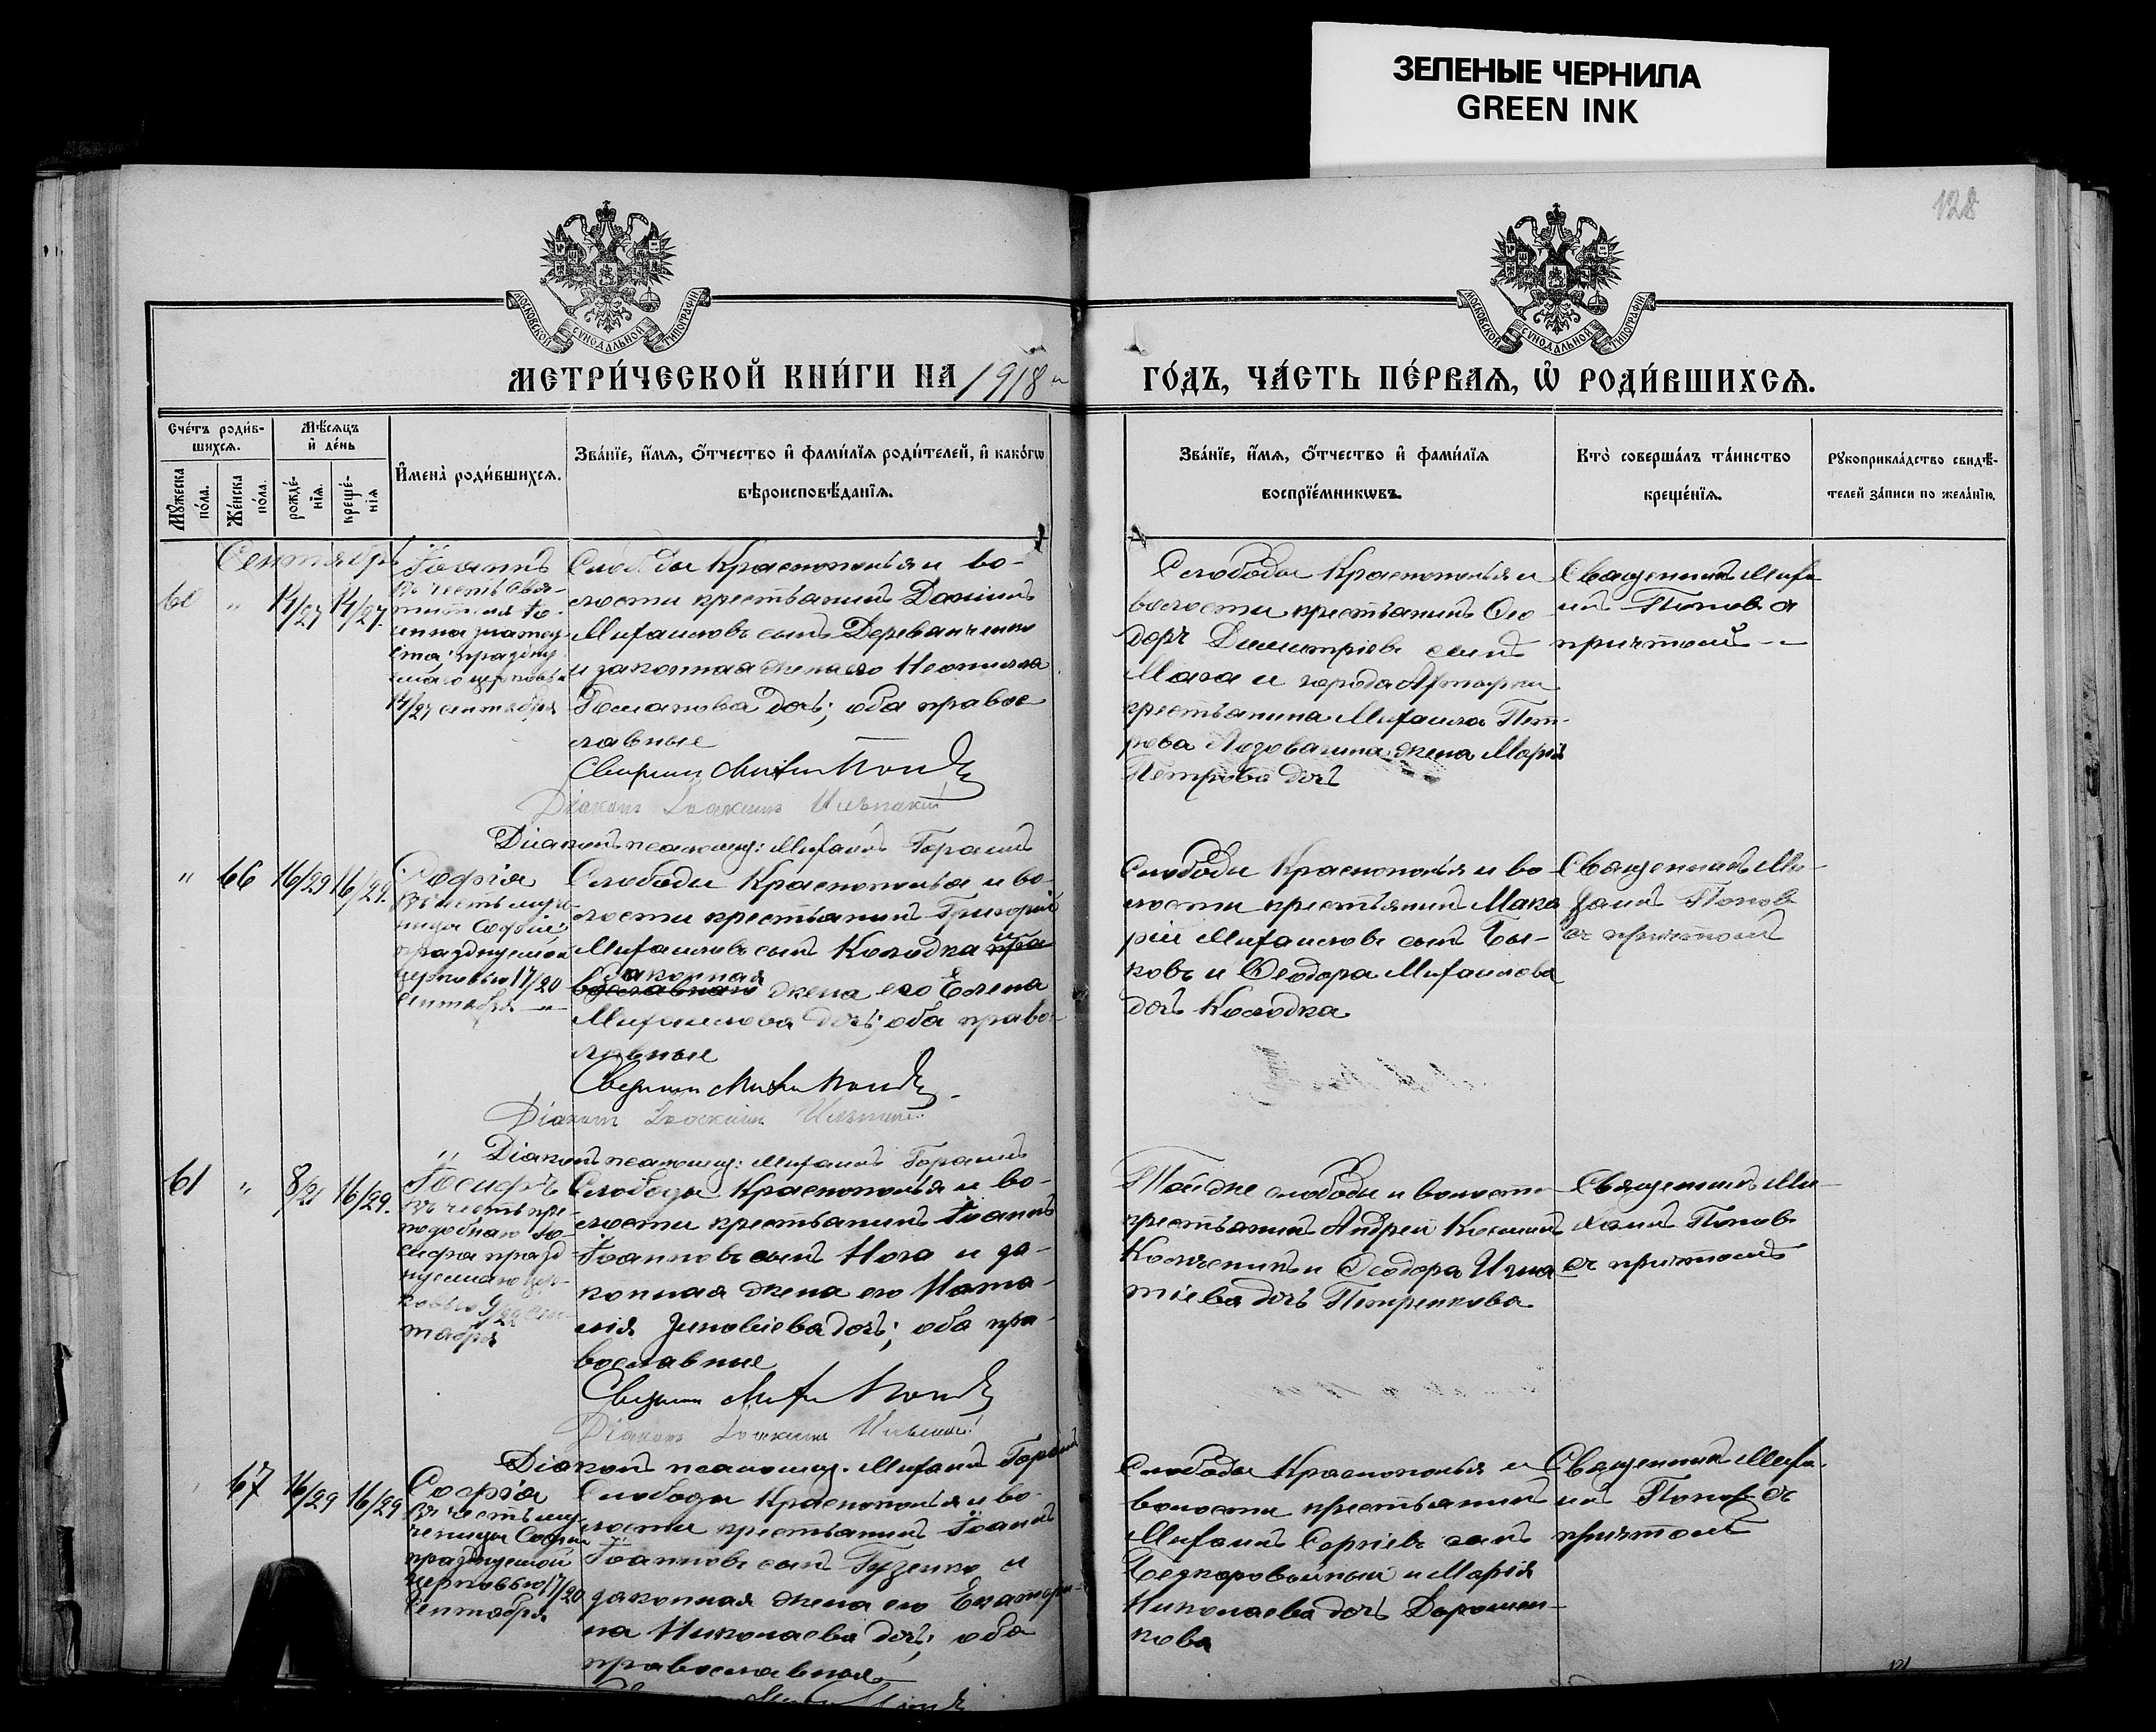 ЗЕЛЕНЫЕ ЧЕРНИЛА
GREEN INK
128
МОСКОВСКОЙ СУНОДАЛЬНОЙ ТИПОГРАФІИ
МОСКОВСКОЙ СУНОДАЛЬНОЙ ТИПОГРАФІИ
МЕТРИ́ЧЕСКОЙ КНИ́ГИ НА 1918
ГО́ДЪ, ЧА́СТЬ ПЕ́РВАѦ, Ѡ҆ РОДИ́ВШИХСѦ.
Сче́тъ роди́в-
шихсѧ.
Мѣ́сѧцъ
и҆ де́нь
Мꙋ́жеска
по́ла.
Же́нска
по́ла.
рожде́-
нїѧ.
креще́-
нїѧ
И҆мена̀ роди́вшихсѧ.
Зва́нїе, и҆́мѧ, ѻ҆́тчество и҆ фами́лїѧ роди́телей, и҆ како́гѡ
вѣроисповѣ́данїѧ.
Зва́нїе, и҆́мѧ, ѻ҆́тчество и҆ фами́лїѧ
воспрїе́мникѡвъ.
Кто̀ соверша́лъ та́инство
креще́нїѧ.
Рꙋкоприкла́дство свидѣ́-
телей за́писи по жела́нїю.
Сентябрь
60 " 14/27 14/27.
Іоаннъ
въ честь свя-
тителя Іо-
анна златоу
ста празну
емаго церковью
14/27 сентября
Слободы Краснополья и во-
лости крестьянинъ Даніилъ
Михаиловъ сынъ Деревянченко
и законная жена его Неонилла
Романова дочь; оба правос
лавные
Діаконъ Іоакимъ
Діаконъ псаломщ: Михаилъ Гораинъ
Слободы Краснополья и
волости крестьянинъ Ѳео
доръ Димитріевъ сынъ
Мага и города Ахтырки
крестьянина Михаила Пет-
рова Лозовагина жена Марія
Петрова дочь
Священникъ Миха
илъ Поповъ съ
причтомъ
" 66 16/29 16/29.
Софія
въ честь муче-
ницы Софіи
празднуемой
церковью 17/30
сентября
Слободы Краснополья и во-
лости крестьянинъ Григорій
Михаиловъ сынъ Колодка и пра
вославная законная жена его Елена
Михаилова дочь; оба право-
лавные
Діаконъ Іоакимъ
Діаконъ псаломщ: Михаилъ Гораинъ
Слободы Краснополья и во
лости крестьянинъ Мака
рій Михаиловъ сынъ Бы-
ковъ и Ѳеодора Михаилова
дочь Колодка
Священникъ Ми-
хаилъ Поповъ
съ причтомъ
61 " 8/21 16/29.
Іосифъ
въ честь пре-
подобнаго Іо-
сифа празд
нуемаго цер-
ковью 9/22 сен-
тября
Слободы Краснополья и во-
лости крестьянинъ Іоаннъ
Іоанновъ сынъ Нога и за-
конная жена его Ната-
лія Зиновіева дочь; оба пра-
вославные
Діаконъ Іоакимъ
Діаконъ псаломщ. Михаилъ Гораинъ
Той же слободы и волости
крестьянинъ Андрей Косминъ
и Ѳеодора Игна
тіева дочь Петренкова
Священникъ Ми-
хаилъ Поповъ
съ причтомъ
67 16/29 16/29
Софія
въ честь му-
ченицы Софіи
празднуемой
церковью 17/30
сентября
Слободы Краснополья и во-
лости крестьянинъ Іоаннъ
Іоанновъ сынъ Гузенко и
законная жена его Екатери-
на Николаева дочь; оба
православная
Слободы Краснополья и
волости крестьянинъ
Михаилъ Сергіевъ сынъ
Безкоровайный и Марія
Николаева дочь Дорошен-
кова
Священникъ Миха
илъ Поповъ съ
причтомъ